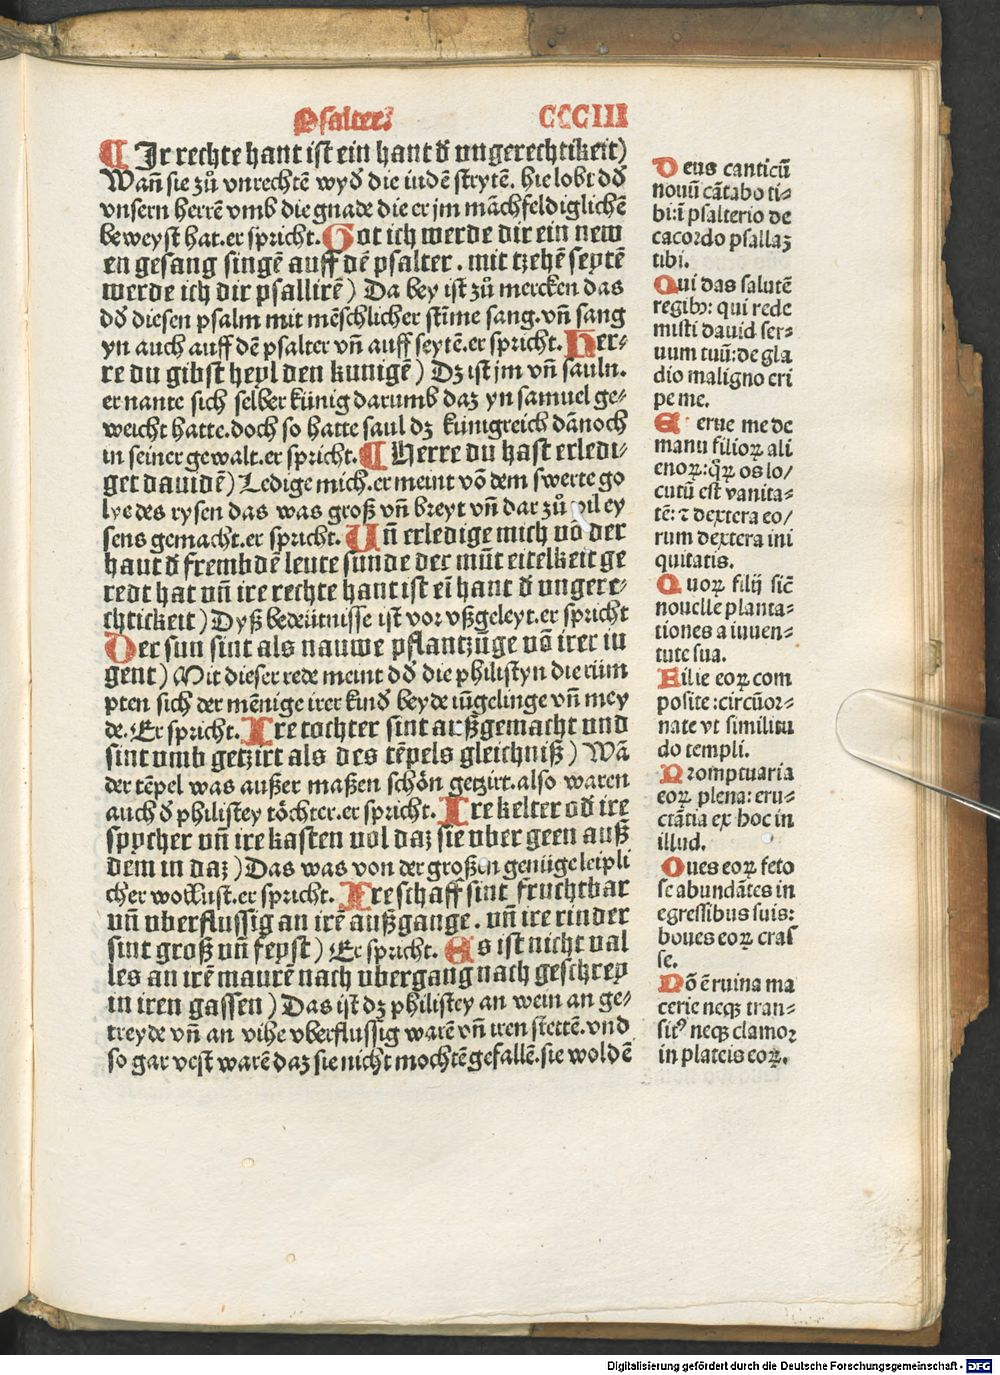 Psalter. CCCIII
¶ Ir rechte hant ist ein hant d̓ ungerechtikeit)
Wañ sie zů vnrechtē wyd̓ die iudē strytē. hie lobt dd̓
vnsern herrē vmb die gnade die er jm mãchfeldiglichē
beweyst hat.er spricht. Got ich werde dir ein new
en gesang singē auff dē psalter. mit tzehē seytē
werde ich dir psallirē) Da bey ist zů mercken das
dd̓ diesen psalm mit mēschlicher stīme sang.vñ sang
yn auch auff dē psalter vñ auff seytē.er spricht. Her⸗
re du gibst heyl den kunigē) Dz ist jm vñ sauln.
er nante sich selber künig darumb daz yn samuel ge⸗
weicht hatte.doch so hatte saul dz künigreich dãnoch
in seiner gewalt.er spricht. ¶ Herre du hast erledi⸗
get dauidē) Ledige mich.er meint vō dem swerte go
lye des rysen das was groß vñ breyt vñ dar zů vil ey
sens gemacht.er spricht. Uñ erledige mich vō der
haut d̓ frembdē leute sunde der mūt eitelkeit ge
redt hat vñ ire rechte hant ist eī hant d̓ ungere⸗
chtickeit) Dyß bedeütnisse ist vor vßgeleyt.er spricht
Der sun sint als nauwe pflantzūge vō irer iu
gent) Mit dieser rede meint dd̓ die philistyn die rüm
pten sich der mēnige irer kind̓ beyde iūgelinge vñ mey
de. Er spricht. Ire tochter sint außgemacht und
sint umb getzirt als des tēpels gleichniß) Wã
der tēpel was außer maßen schön getzirt.also waren
auch d̓ philistey töchter.er spricht. Ire kelter od̓ ire
spycher vñ ire kasten vol daz sie vber geen auß
dem in daz) Das was von der großen genüge leipli
cher wollust.er spricht. Ire schaff sint fruchtbar
vñ vberflussig an irē außgange. vñ ire rinder
sint groß vñ feyst) Er spricht. Es ist nicht val
les an irē maurē nach vbergang nach geschrey
in iren gassen) Das ist dz philistey an wein an ge⸗
treyde vñ an vihe vberflussig warē vñ iren stettē.vnd
so gar vest warē daz sie nicht mochtē gefallē.sie woldē
Deus canticū
nouū cãtabo ti⸗
bi:ī psalterio de
cacordo psallaꝫ
tibi.
Qui das salutē
regibꝰ: qui rede
misti dauid ser⸗
uum tuū:de gla
dio maligno eri
pe me.
Et erue me de
manu filioꝝ ali
enoꝝ:q̊ꝝ os lo/
cutū est vanita⸗
tē: ⁊ dextera eo/
rum dextera ini
quitatis.
Quoꝝ filij sic̄
nouelle planta⸗
tiones a iuuen⸗
tute sua.
Filie eoꝝ com
posite :circūor⸗
nate vt similitu
do templi.
Promptuaria
eoꝝ plena: eru⸗
ctãtia ex hoc in
illud.
Oues eoꝝ feto
se abundãtes in
egressibus suis:
boues eoꝝ cras
se.
Nō ē ruina ma
cerie neqꝫ tran⸗
sitꝰ neqꝫ clamoꝛ
in plateis eoꝝ.
Digitalisierung gefördert durch die Deutsche Forschungsgemeinschaft - DFG